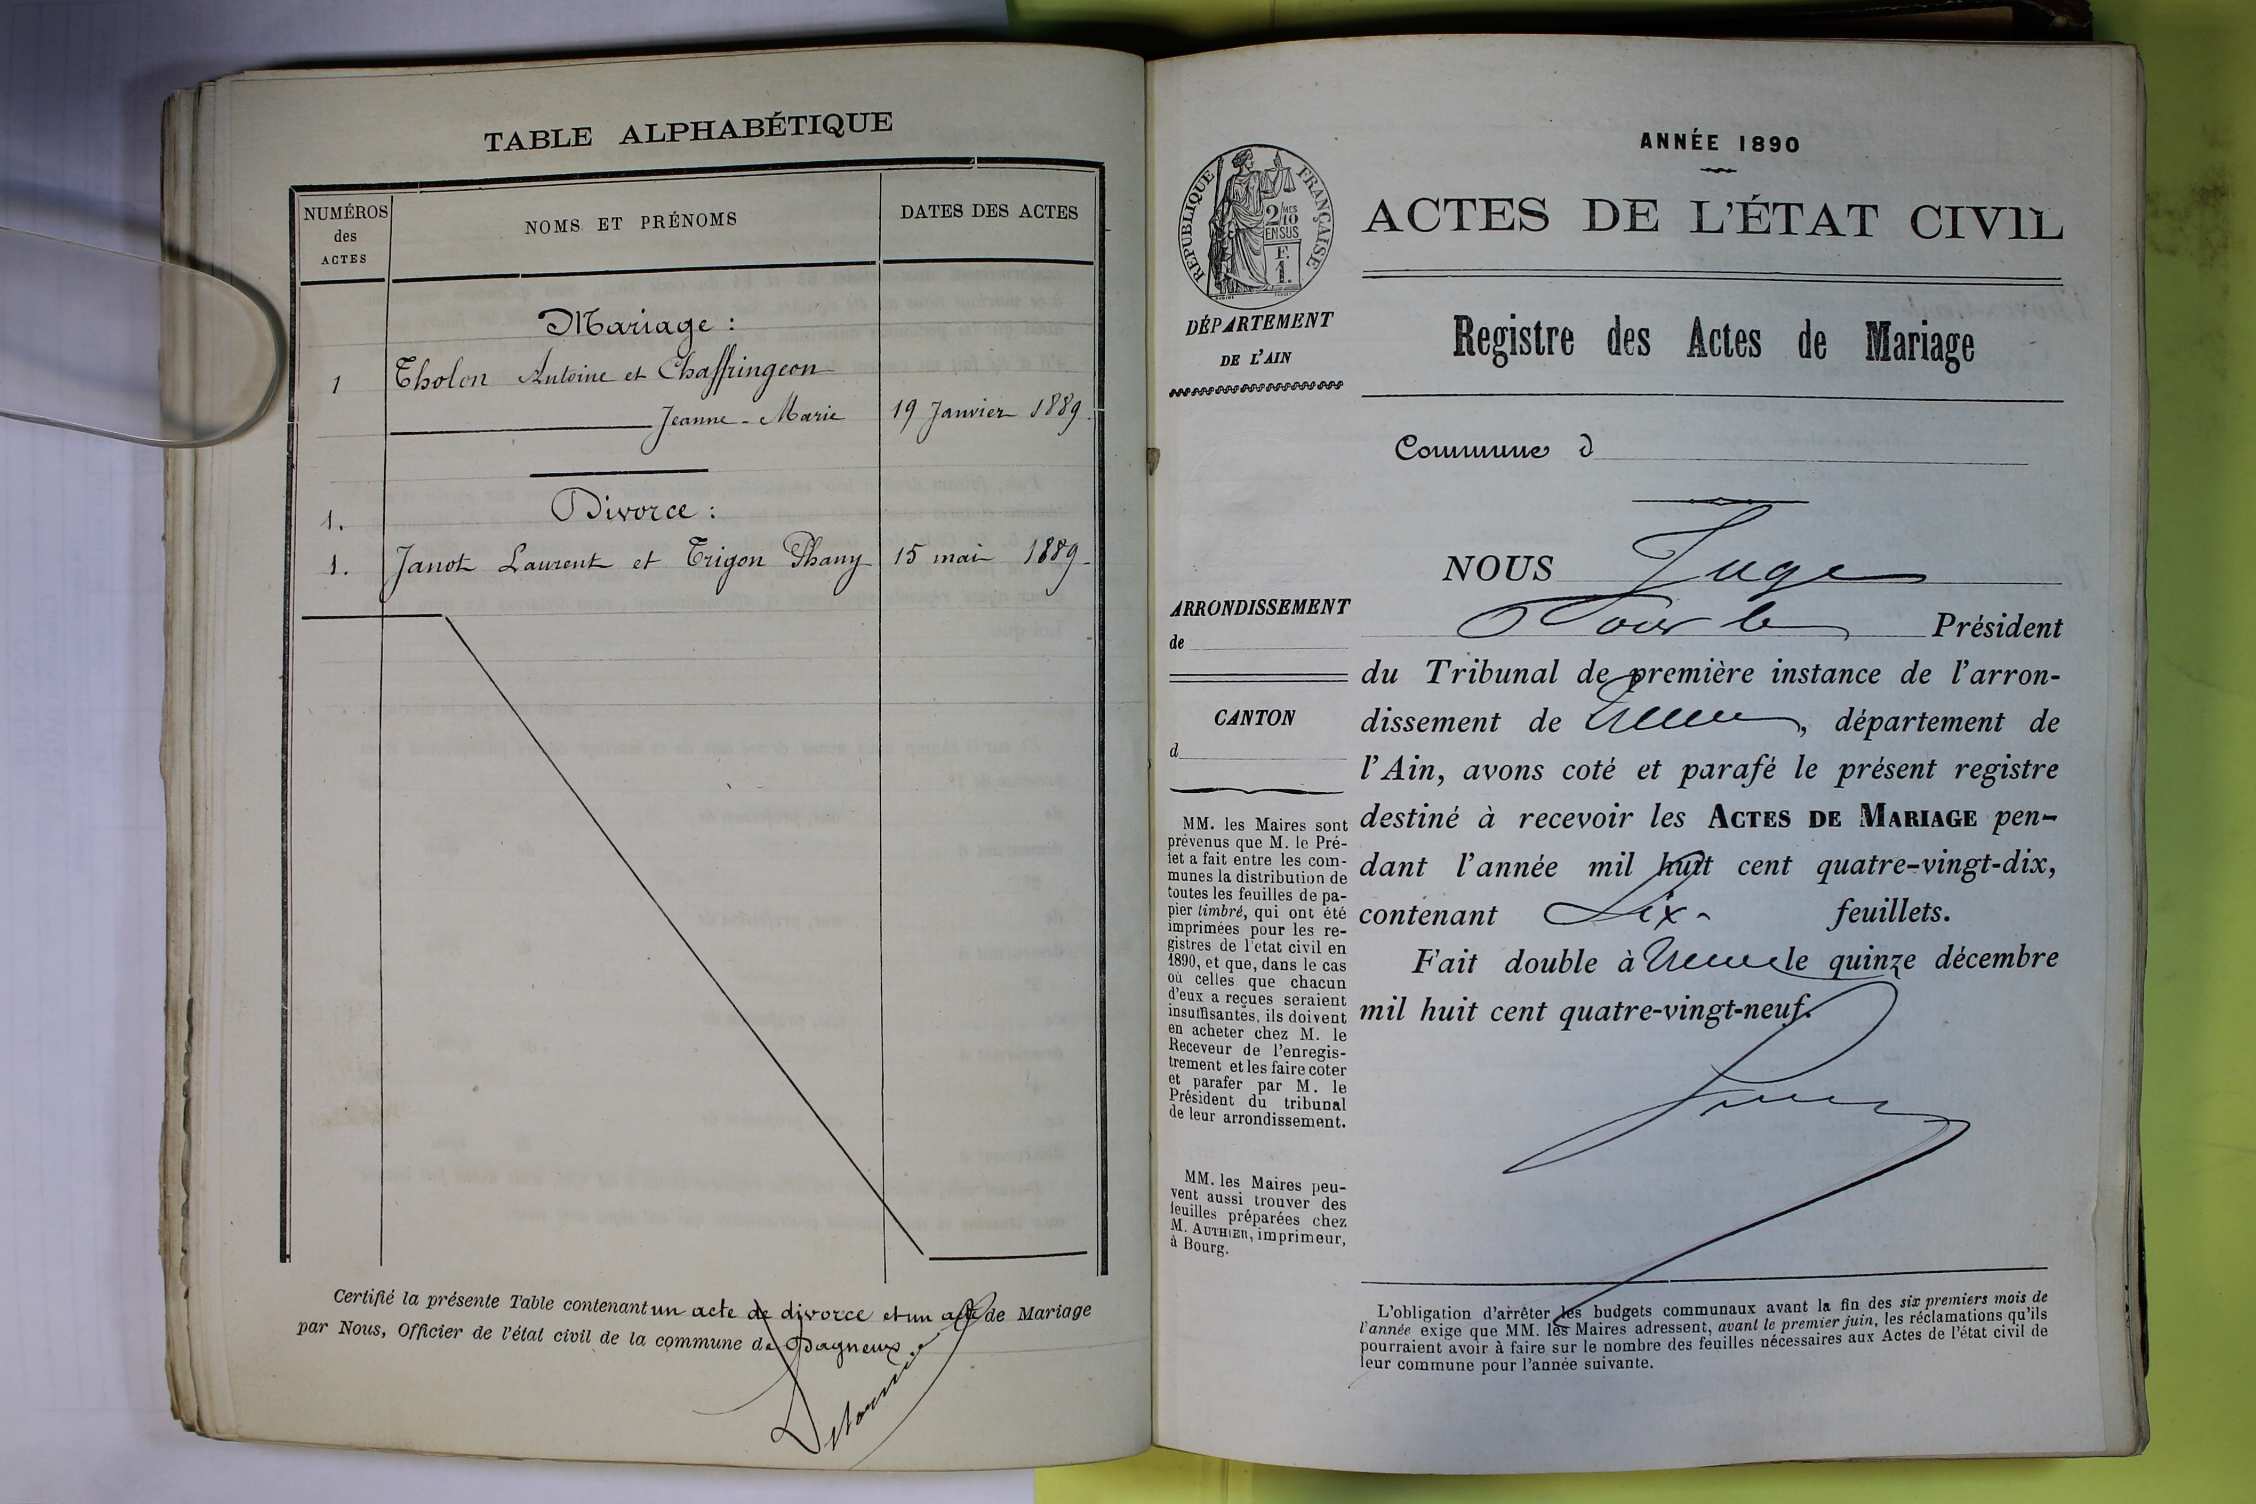 TABLE ALPHABÉTIQUE
NUMÉROS
des
ACTES
NOMS ET PRÉNOMS
DATES DES ACTES
Mariage :
1 Tholon Antoine et Chaffringeon
Jeanne-Marie 19 Janvier 1889.
1. Divorce :
1. Janot Laurent et Trigon Phany 15 mai 1889.
Certifié la présente Table contenant un acte de divorce et un acte de Mariage
par Nous, Officier de l'état civil de la commune de Dagneux.
ANNÉE 1890
RÉPUBLIQUE FRANÇAISE
2/MES
10
EN SUS
F.
1.
DÉPARTEMENT
DE L'AIN
ACTES DE L'ÉTAT CIVIL
Registre des Actes de Mariage
Commune d
NOUS Juge
Pour le Président
du Tribunal de première instance de l'arron-
dissement de Trévoux, département de
l'Ain, avons coté et parafé le présent registre
destiné à recevoir les ACTES DE MARIAGE pen-
dant l'année mil huit cent quatre-vingt-dix,
contenant Six feuillets.
Fait double à Trévoux le quinze décembre
mil huit cent quatre-vingt-neuf.
ARRONDISSEMENT
de
CANTON
d
MM. les Maires sont
prévenus que M. le Pré-
fet a fait entre les com-
munes la distribution de
toutes les feuilles de pa-
pier timbré, qui ont été
imprimées pour les re-
gistres de l'etat civil en
1890, et que, dans le cas
où celles que chacun
d'eux a reçues seraient
insuffisantes, ils doivent
en acheter chez M. le
Receveur de l'enregis-
trement et les faire coter
et parafer par M. le
Président du tribunal
de leur arrondissement.
MM. les Maires peu-
vent aussi trouver des
feuilles préparées chez
M. AUTHIER, imprimeur,
à Bourg.
L'obligation d'arrêter les budgets communaux avant la fin des six premiers mois de
l'année exige que MM. les Maires adressent, avant le premier juin, les réclamations qu'ils
pourraient avoir à faire sur le nombre des feuilles nécessaires aux Actes de l'état civil de
leur commune pour l'année suivante.